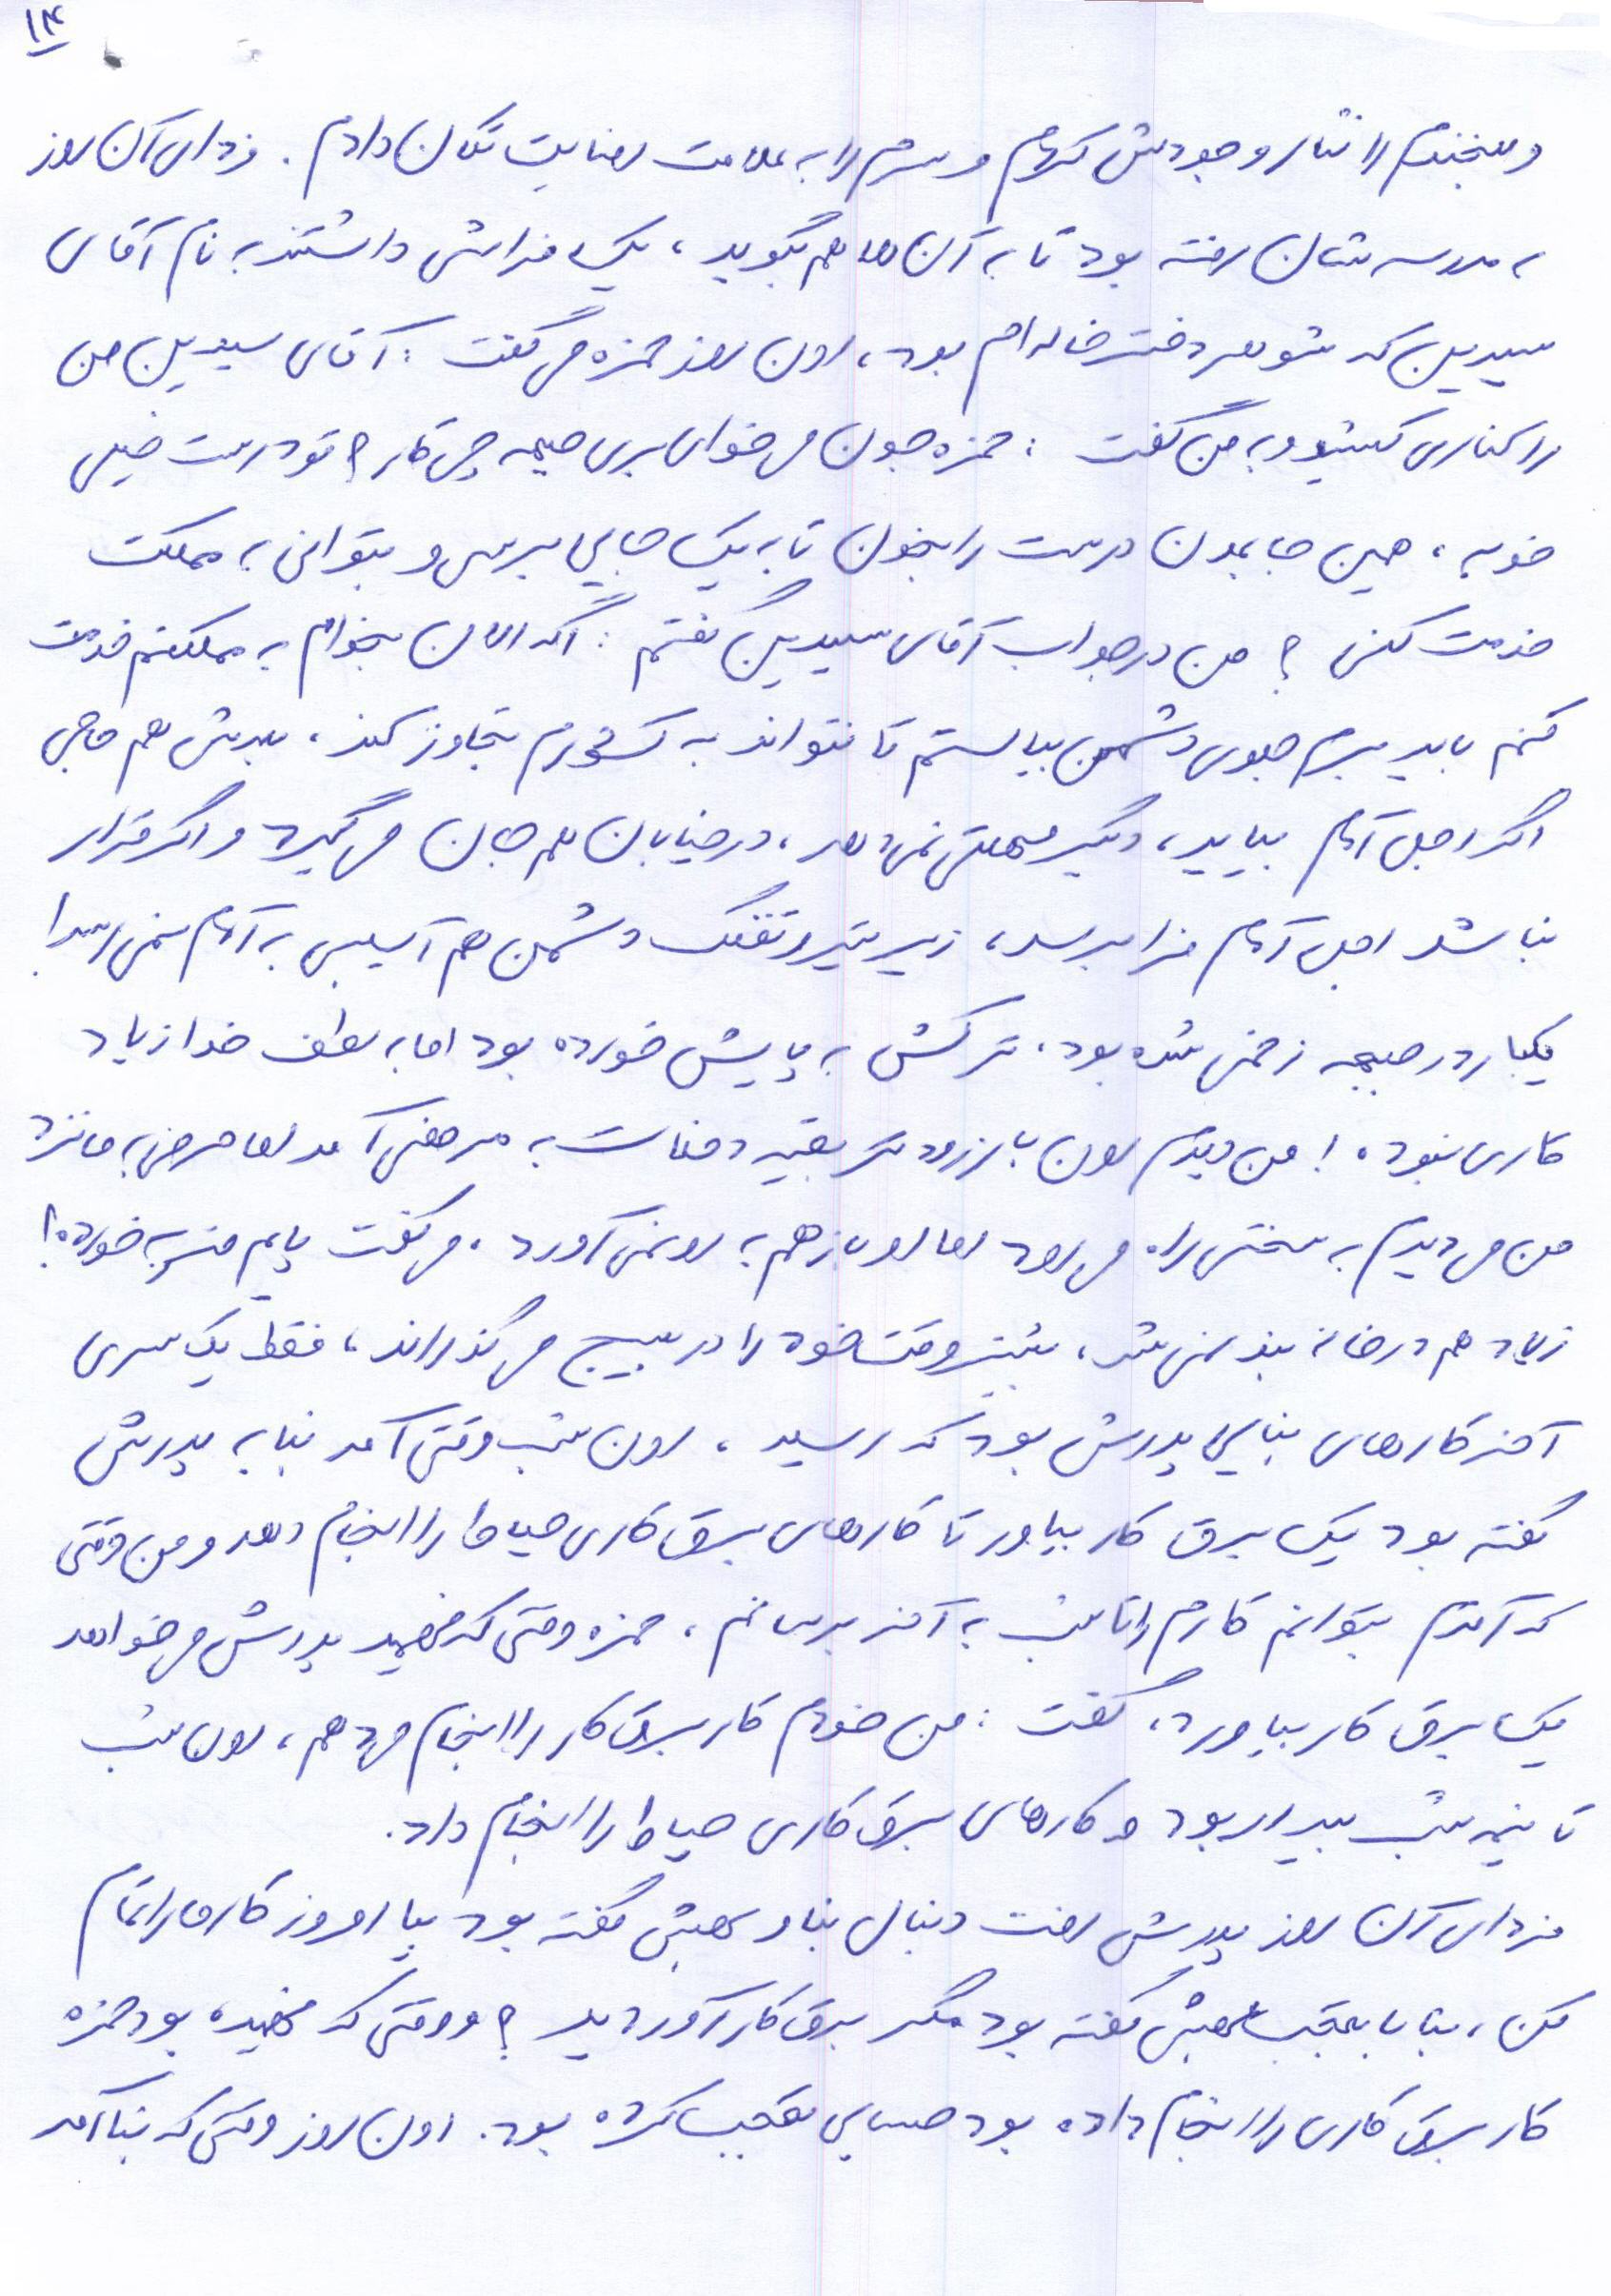 ۱۴
و لبخندم را نثار وجودش کردم و سرم را به علامت رضایت تکان دادم. فردای آن روز
به مدرسه شان رفته بود تا به آن ها هم بگوید، یک فراش داشتند به نام آقای
سیدین که شوهر دختر خاله ام بود، اون روز حمزه می گفت: آقای سیدین من
را کناری کشید و به من گفت: حمزه جون می خوای بری جبهه چی کار؟ تو درست خیلی
خوبه، همین جا بمون درست را بخون تا به یک جایی برسی و بتوانی به مملکت
خدمت کنی؟ من در جواب آقای سیدین گفتم: اگه الان بخوام به مملکتم خدمت
کنم باید برم جلوی دشمن بیایستم تا نتواند به کشورم تجاوز کند، بعدش هم حاجی
اگر اجل آدم بیاید، دیگر مهلتی نمی دهد، در خیابان هم جان می گیرد و اگر قرار
نباشد اجل آدم فرا برسد، زیر تیر و تفنگ دشمن هم آسیبی به آدم نمی رسد!
یکبار در جبهه زخمی شده بود، ترکش به پایش خورده بود اما به لطف خدا زیاد
کاری نبود! من دیدم اون بار زودتر بقیه دفعات به مرخصی آمد اما حرفی به ما نزد
من می دیدم به سختی راه می رود اما او باز هم به رو نمی آورد، می گفت پایم ضربه خورده!
زیاد هم در خانه بند نمی شد، بیشتر وقت خود را در بسیج می گذراند، فقط یک سری
آخر کارهای بنایی پدرش بود که رسید، اون شب وقتی آمد بنا به پدرش
گفته بود یک برق کار بیاور تا کارهای برق کاری حیاط را انجام دهد و من وقتی
که آمدم بتوانم کارم را تا شب به آخر برسانم، حمزه وقتی که فهمید پدرش می خواهد
یک برق کار بیاورد، گفت: من خودم کار برق کار را انجام می دهم، اون شب
تا نیمه شب بیدار بود و کارهای برق کاری حیاط را انجام داد.
فردای آن روز پدرش رفت دنبال بنا و بهش گفته بود بیا امروز کارها را تمام
کن، بنا با تعجب بهش گفته بود مگر برق کار آوردید؟ و وقتی که فهمیده بود حمزه
کار برق کاری را انجام داده بود حسابی تعجب کرده بود. اون روز وقتی که بنا آمد